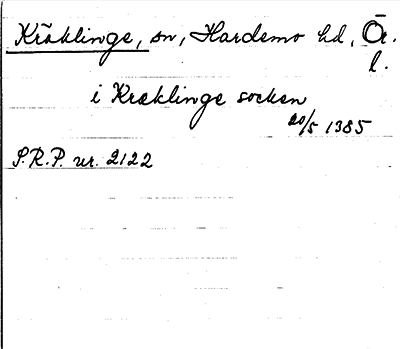 Kräklinge, sn, Hardemo hd, Ör.
l.
i Kræklinge socken
20/5 1385
S.R.P. nr. 2122